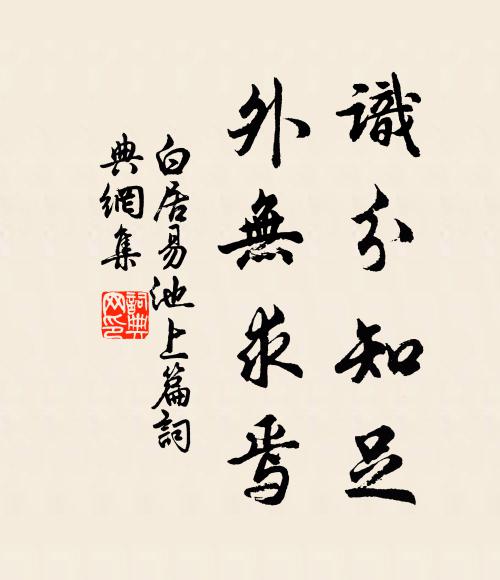 識分知足
外無求焉
白居易池上篇詞
典網集
詞典网印